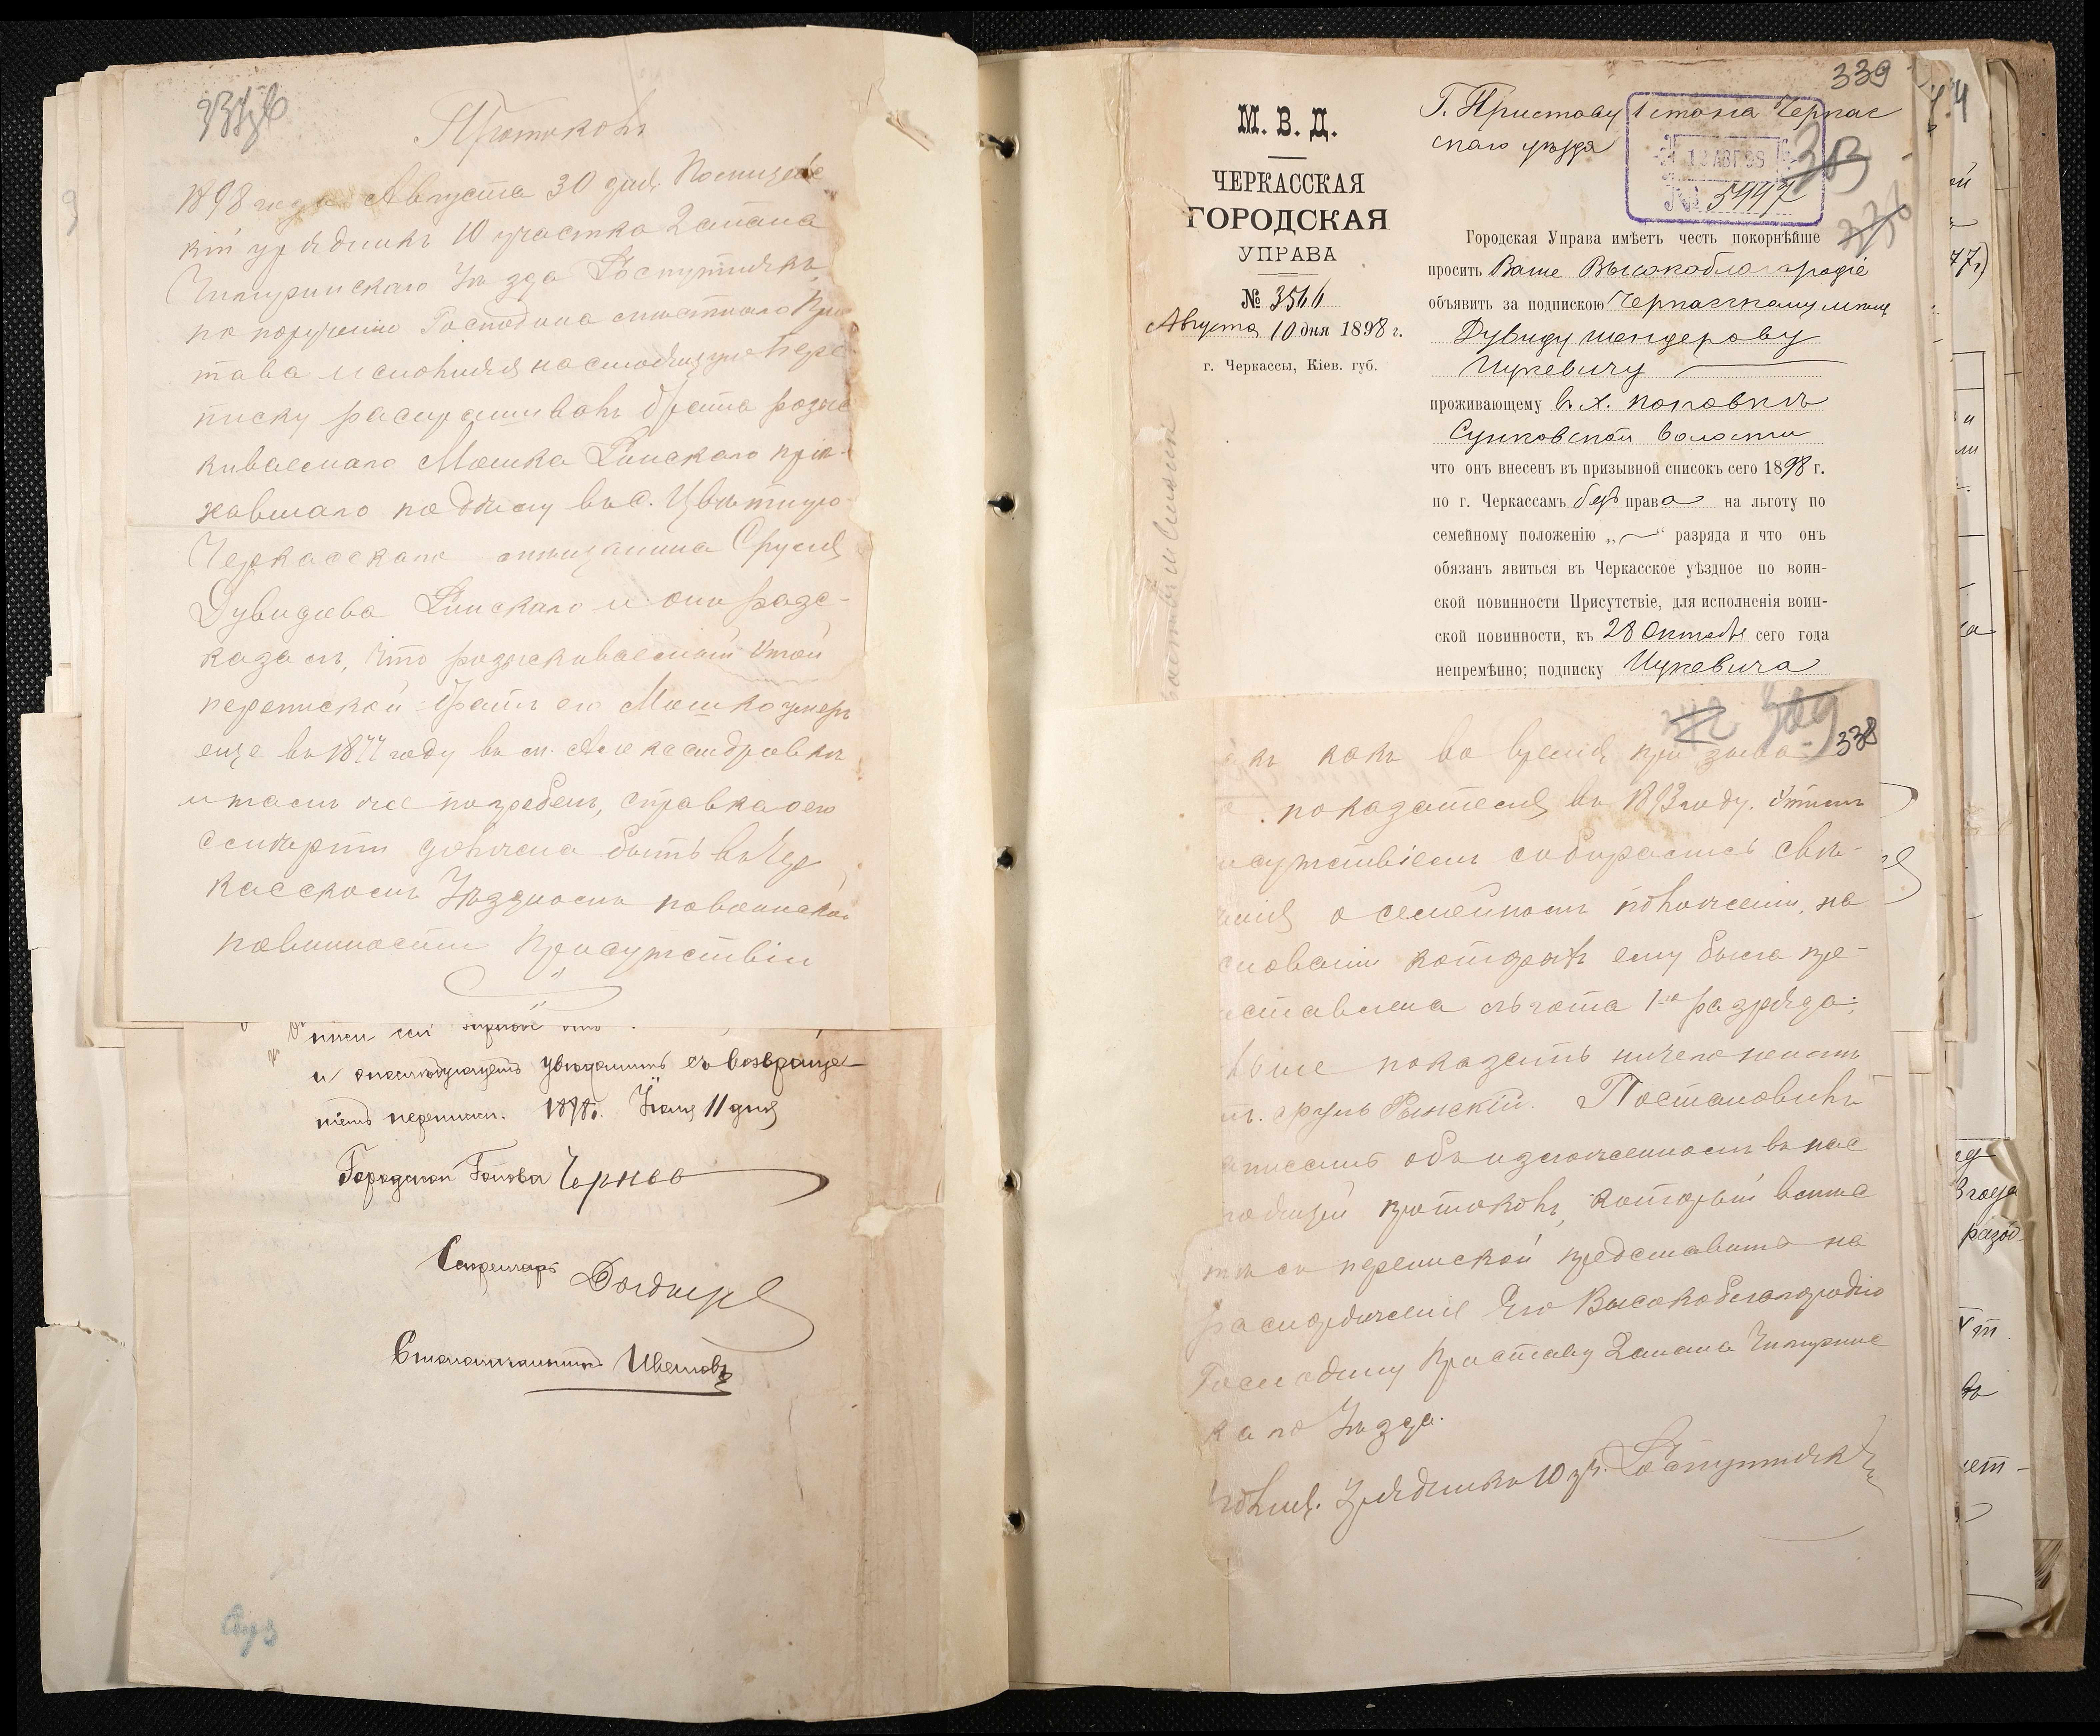 Протоколъ
1898 года Августа 30 дня. Полицейс
кій урядникъ 10 участка 2 стана
Чигиринскаго Уѣзда Распутнякъ,
по порученію Господина мѣстнаго При
става исполняя настоящую Пере
писку разспрашивалъ брата розыс
киваемаго Мошка Рынскаго прож-
жавшаго въ с. Цвѣтную
Черкасскаго мѣщанина Сруля
Дувидова Рынскаго и онъ разс-
казалъ, что розыскиваемый этой
перепиской братъ его Мошко умеръ
еще въ 1877 году въ м. Александровкѣ
и тамъ же погребенъ, справка о его
смерти должна быть въ Чер
касскомъ Уѣздномъ по воинской
повинности Присутствіи
и опослѣдующемъ увѣдомить съ возвраще-
ніемъ переписки. 1898 г. Іюня 11 дня
Городской Голова Черново
Секретарь
Столоначальникъ Ивановъ
339
М. В. Д.
ЧЕРКАССКАЯ
ГОРОДСКАЯ
УПРАВА
№ 3566
Августа 10 дня 1898 г.
г. Черкассы, Кіев. губ.
Г. Приставу 1 стана Черкас
скаго уѣзда
12 АВГ 98
№ 5447
313
Городская Управа имѣетъ честь покорнѣйше
просить Ваше Высокоблагородіе
объявить за подпискою Черкасскому мѣщ
Дувиду Шендерову
Цукевичу
проживающему въ х. Поповкѣ
Сунковской волости
что онъ внесенъ въ призывной списокъ сего 1898 г.
по г. Черкассамъ безъ права на льготу по
семейному положенію „—“ разряда и что онъ
обязанъ явиться въ Черкасское уѣздное по воин-
ской повинности Присутствіе, для исполненія воин-
ской повинности, къ 28 Октября сего года
непремѣнно; подписку Цукевича
309
338
къ какъ во время призыва
показателя въ 1893 году. этимъ
исутствіемъ собирались свѣ-
енія о семейномъ положеніи, на
снованіи которыхъ ему была пре-
оставлена льгота 1-го разряда;
ольше показать ничего не
Сруль Рынскій. Постановилъ
аписать объ изложенномъ въ нас
тоящій протоколъ, который вмѣс
тѣ съ перепиской представить на
распоряженіе Его Высокоблагородію
Господину Приставу 2 стана Чигиринс
каго Уѣзда.
Полиц. Урядникъ 10 уч. Распутнякъ